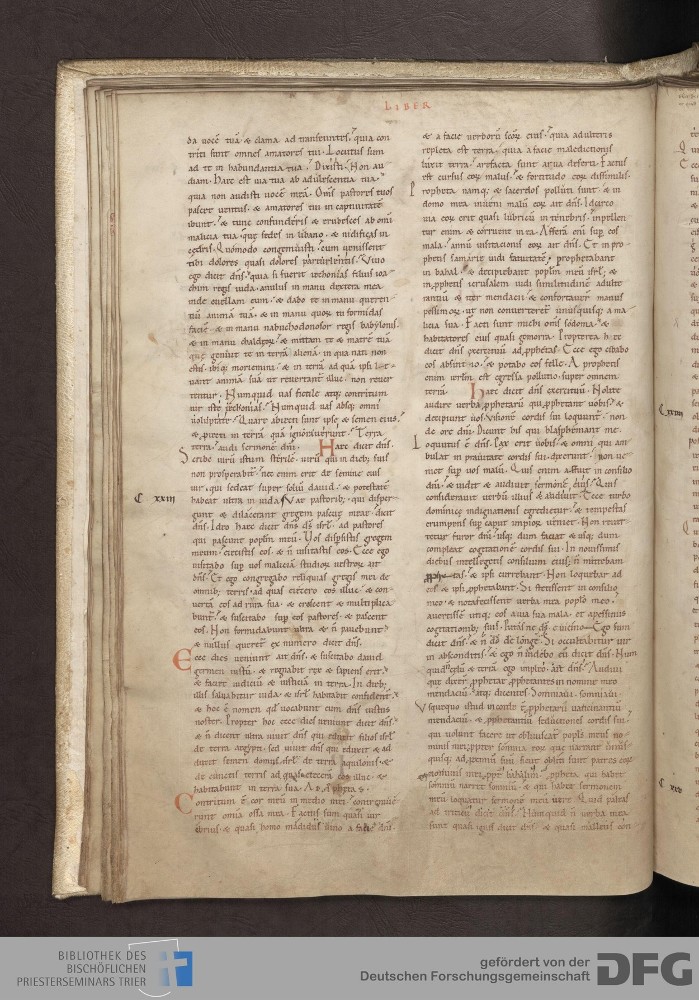 LIBER
da uocē tuā· & clama ad transeuntes· quia con
triti sunt omnes amatores tui· Locutus sum
ad te in habundantia tua· Dixisti· Non au
diam· Haec est uia tua ab adulescentia tua·
quia non audisti uocē meā· Om̄s pastores tuos
pascet uentus· & amatores tui in captiuitatē
ibunt· & tunc confunderis & erubesces ab om̄i
malicia tua· que sedes in libano· & nidificas in
cedris· Quomodo congemuisti· cum uenissent
tibi dolores quasi dolores parturientis· Viuo
ego dicit dn̄s· quia si fuerit iechonias filius ioa
chim regis iuda· anulus in manu dextera mea
inde euellam eum· & dabo te in manu queren
tiū animā tuā· & in manu quorum tu formidas
faciē· & in manu nabuchodonosor regis babylonis·
& in manu chaldeorum· & mittam te & matrē tuā
que genuit te in terrā alienā· in qua nati non
estis· ibiq; moriemini· & in terrā ad quā ipsi le
uant animā suā ut reuertant̄ illuc· non reuer
tentur· Numquid uas fictile atq; contritum
uir iste iechonias· Numquid uas absq; omni
uoluptate· Quare abiecti sunt ipse & semen eius·
& proiecti in terrā quā ignorauerunt· Terra
terra· audi sermonē dn̄i· Haec dicit dn̄s·
Scribe uirū istum sterilē· uirū qui in dieb; suis
non prosperabit̄· nec enim erit de semine eius
uir· qui sedeat super soliū dauid· & potestatē
C xxiii habeat ultra in iuda· Vae pastorib;· qui disper
gunt & dilacerant gregem pascue meae· dicit
dn̄s· Ideo haec dicit dn̄s ds̄ isrl̄· ad pastores
qui pascunt populm̄ meū· Vos dispsistis gregem
meum· eiecistis eos· & n̄ uisitastis eos· Ecce ego
uisitabo sup uos maliciā studiorum uestrorum ait
dn̄s· Et ego congregabo reliquias gregis mei de
omnib; terris· ad quas eiecero eos illuc· & con
uertā eos ad rura sua· & crescent & multiplica
bunt̄· & suscitabo sup eos pastores· & pascent
eos· Non formidabunt ultra & n̄ pauebunt·
& nullus queret̄ ex numero dicit dn̄s·
Ecce dies ueniunt ait dn̄s· & suscitabo dauid
germen iustū· & regnabit rex & sapiens erit·
& faciet iudiciū & iusticiā in terra· In dieb;
illis saluabitur iuda· & isrl̄ habitabit confident̄·
& hoc ē nomen qđ uocabunt eum dn̄s iustus
noster· Propter hoc ecce dies ueniunt dicit dn̄s·
& n̄ dicent ultra uiuit dn̄s qui eduxit filios isrl̄
de terra aegypti· sed uiuit dn̄s qui eduxit & ad
duxit semen domus isrl̄ de terra aquilonis· &
de cunctis terris ad quas eieceram eos illuc· &
habitabunt in terra sua· Ad prophetas·
Contritum ē cor meū in medio mei· contremue
runt omia ossa mea· Factus sum quasi uir
ebrius· & quasi homo madidus uino a facie dn̄i·
& a facie uerborū scōrum eius· quia adulteris
repleta est terra· quia a facie maledictionis
luxit terra· arefacta sunt arua deserti· Factus
est cursus eorum malus· & fortitudo eorum dissimilis·
Propheta namq; & sacerdos polluti sunt· & in
domo mea inueni malū eorum ait dn̄s· Idcirco
uia eorum erit quasi lubricū in tenebris· inpellen
tur enim & corruent in ea· Afferā enī sup eos
mala· annū uisitationis eorum ait dn̄s· Et in pro
phetis samariē uidi fatuitatē· prophetabant
in bahal· & decipiebant poplm̄ meū isrl̄· &
in pphetis ierusalem uidi similitudinē adulte
rantiū & iter mendacii· & confortauer̄ manus
pessimorum· ut non conuerteret̄ unusquisq; a ma
licia sua· Facti sunt michi om̄s sodoma· &
habitatores eius quasi gomorra· Propterea haec
dicit dn̄s exercituū ad pphetas· Ecce ego cibabo
eos absintio· & potabo eos felle· A prophetis
enim ierlm̄ est egressa pollutio· super omnem
terrā· Haec dicit dn̄s exercituū· Nolite
audire uerba pphetarū qui pphetant uobis· &
decipiunt uos· Visionē cordis sui loquunt̄· non
de ore dn̄i· Dicunt his qui blasphemant me·
Locutus ē dn̄s· Pax erit uobis· & omni qui am
bulat in prauitate cordis sui· dixerunt· non ue
niet sup uos malū· Quis enim affuit in consilio
dn̄i· & uidit & audiuit sermonē eius· Quis
considerauit uerbū illius & audiuit· Ecce turbo
dominicę indignationis egredietur· & tempestas
erumpens sup caput impiorum ueniet· Non reuer
tetur furor dn̄i· usq; dum faciat & usq; dum
compleat cogitationē cordis sui· In nouissimis
dieb; intellegetis consilium eius· n̄ mittebam
pphetas· & ipsi currebant· Non loquebar ad
eos· & ipsi pphetabant· Si stetissent in consilio
meo· & nota fecissent uerba mea poplo meo·
auertissē utiq; eos a uia sua mala· et a pessimis
cogitationib; suis· Putasne ds̄ e uicino· Ego sum
dicit dn̄s· & n̄ ds̄ de longe· Si occultabitur uir
in absconditis· & ego n̄ uidebo eū dicit dn̄s· Num
quid celū & terrā ego impleo· ait dn̄s· Audiui
que dixer̄ pphetae· pphetantes in nomine meo
mendaciū· atq; dicentes· Somniaui· somniaui·
Vsquequo istud in corde ē pphetarū uaticinantiū
mendaciū· & pphetantiū seductiones cordis sui·
qui uolunt facere ut obliuiscat̄ popls̄ meus no
minis mei· ppter somnia eorum que narrant unus
quisq; ad pximū suū· sicut obliti sunt patres eorum
nominis mei ppter bahalim· ppheta qui habet
somniū narret somniū· & qui habet sermonem
meū loquatur sermonē meū uere· Quid paleis
ad triticū dicit dn̄s· Numquid n̄ uerba mea
sunt quasi ignis dicit dn̄s· & quasi malleus con
C xxiiii
C xxv
BIBLIOTHEK DES
BISCHÖFLICHEN
PRIESTERSEMINARS TRIER
gefördert von der
Deutschen Forschungsgemeinschaft
DFG